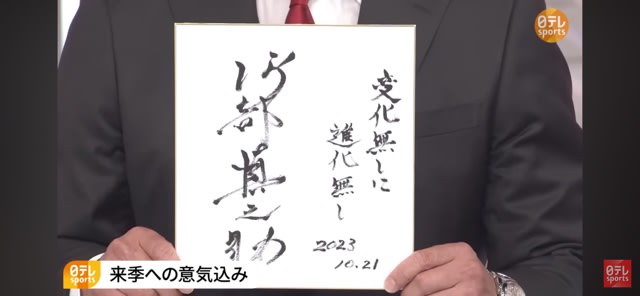 日テレ
sports
変化無しに
進化無し
2023
10.21
阿部慎之助
日テレ
sports
来季への意気込み
日テレ
sports